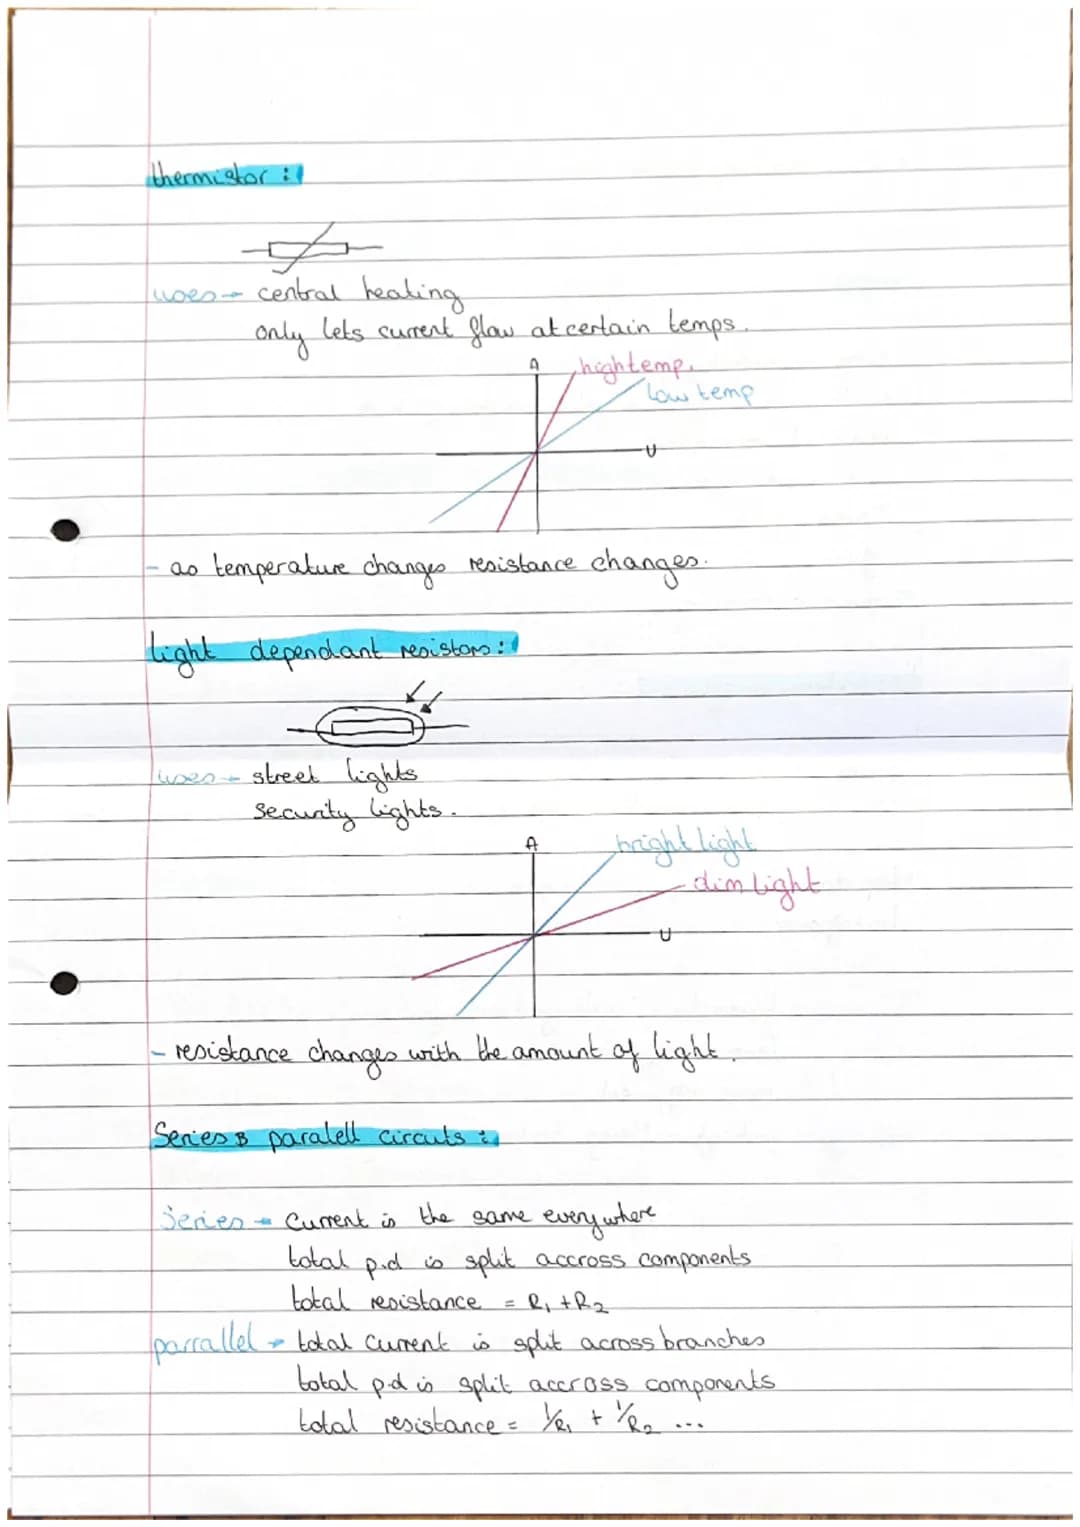 thermistor :
uses → central heating
only lets current flow at certain temps.
A
high temp.
low temp
V
- as temperature changes resistance changes.
light dependant resistors :
uses → street lights
security lights.
A
bright light
dim light
V
- resistance changes with the amount of light.
Series & paralell circuts :
Series → current is the same everywhere
total p.d is split accross components
total resistance = R₁ + R₂
parrallel → total current is split across branches
total p.d is split accross components
total resistance = 1/R₁ + 1/R₂ ...